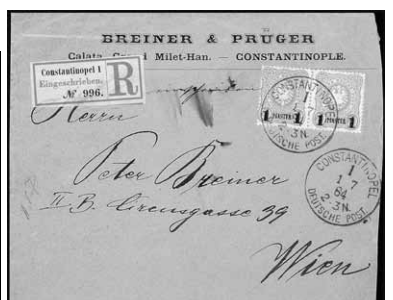 BREINER & PRÜGER
Calata, Milet-Han. — CONSTANTINOPLE.
Constantinopel 1
Eingeschrieben.
№ 996.
R
1 PIASTER 1 1 PIASTER 1
CONSTANTINOPEL
1
1 7
2-3N.
DEUTSCHE POST.
Herrn
CONSTANTINOPEL
1
1 7
84
2-3N.
DEUTSCHE POST.
Peter Breiner
II B. Circusgasse 39
Wien